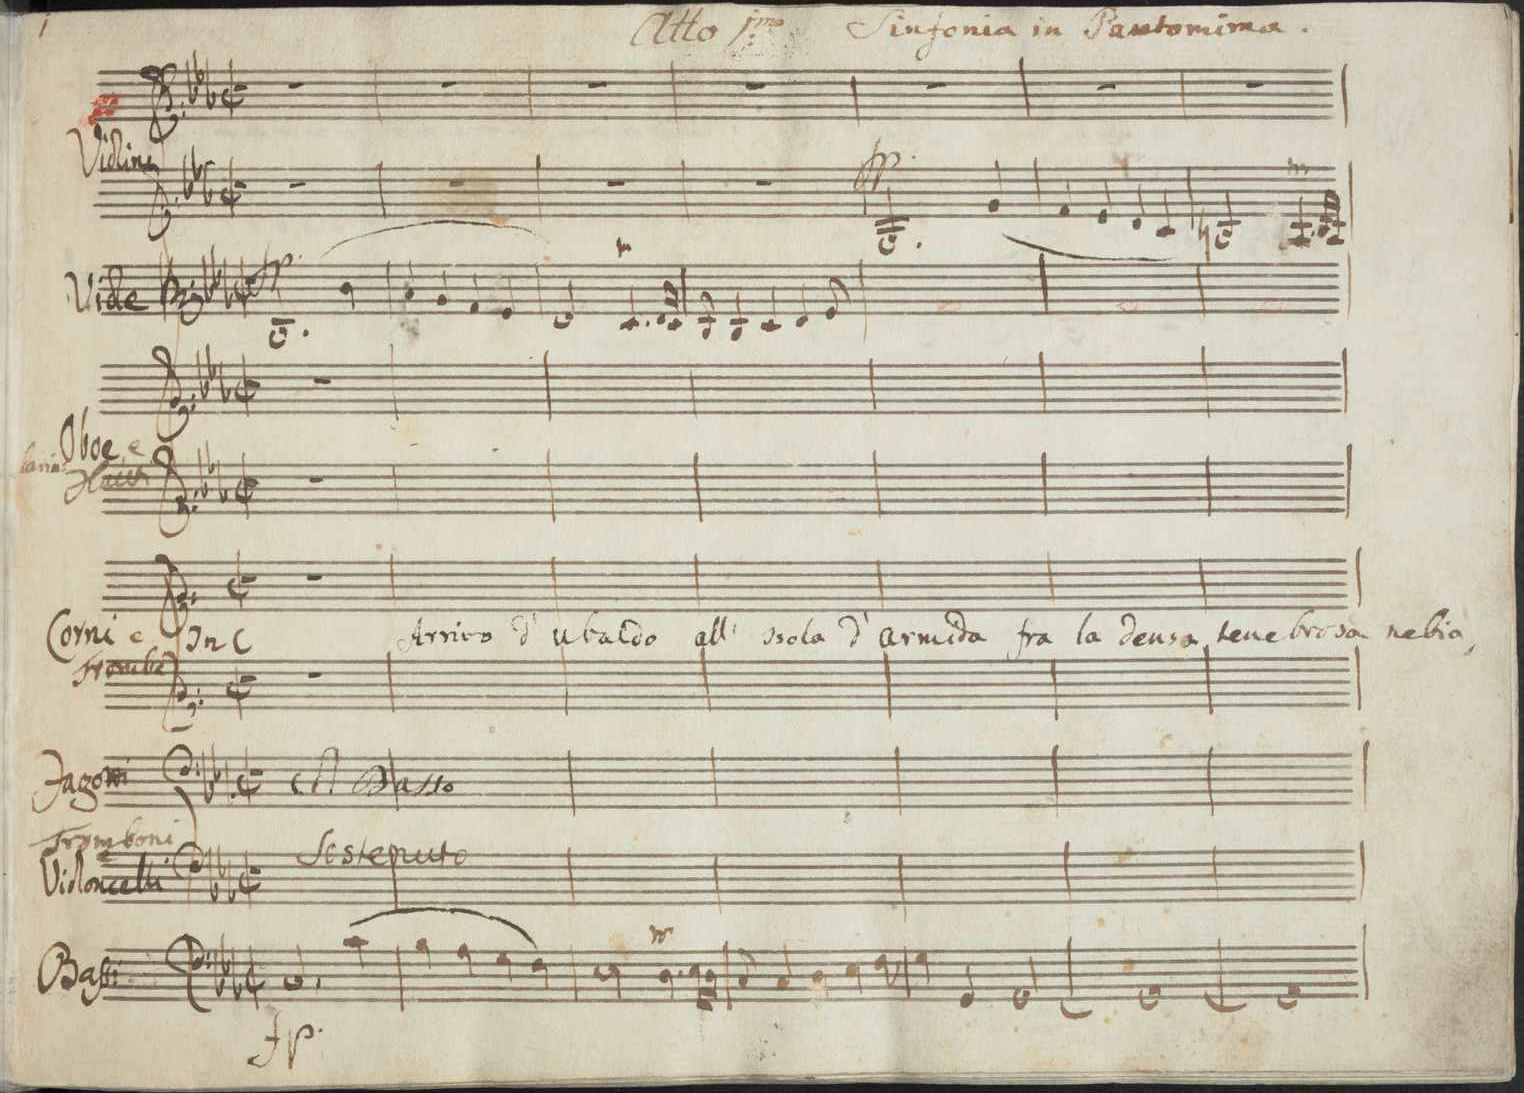 1
Atto jmo Sinfonia in Pantomima.
Violini
pp.
Viole
pp.
Oboe e
Corni e In C
Arrivo d' ubaldo all' ssola d' armida fra la densa tenebrosa nebia,
Trombe
Fagotti
Il Basso
Tromboni
e
Violoncelli
Sostenuto
Bassi
fp.